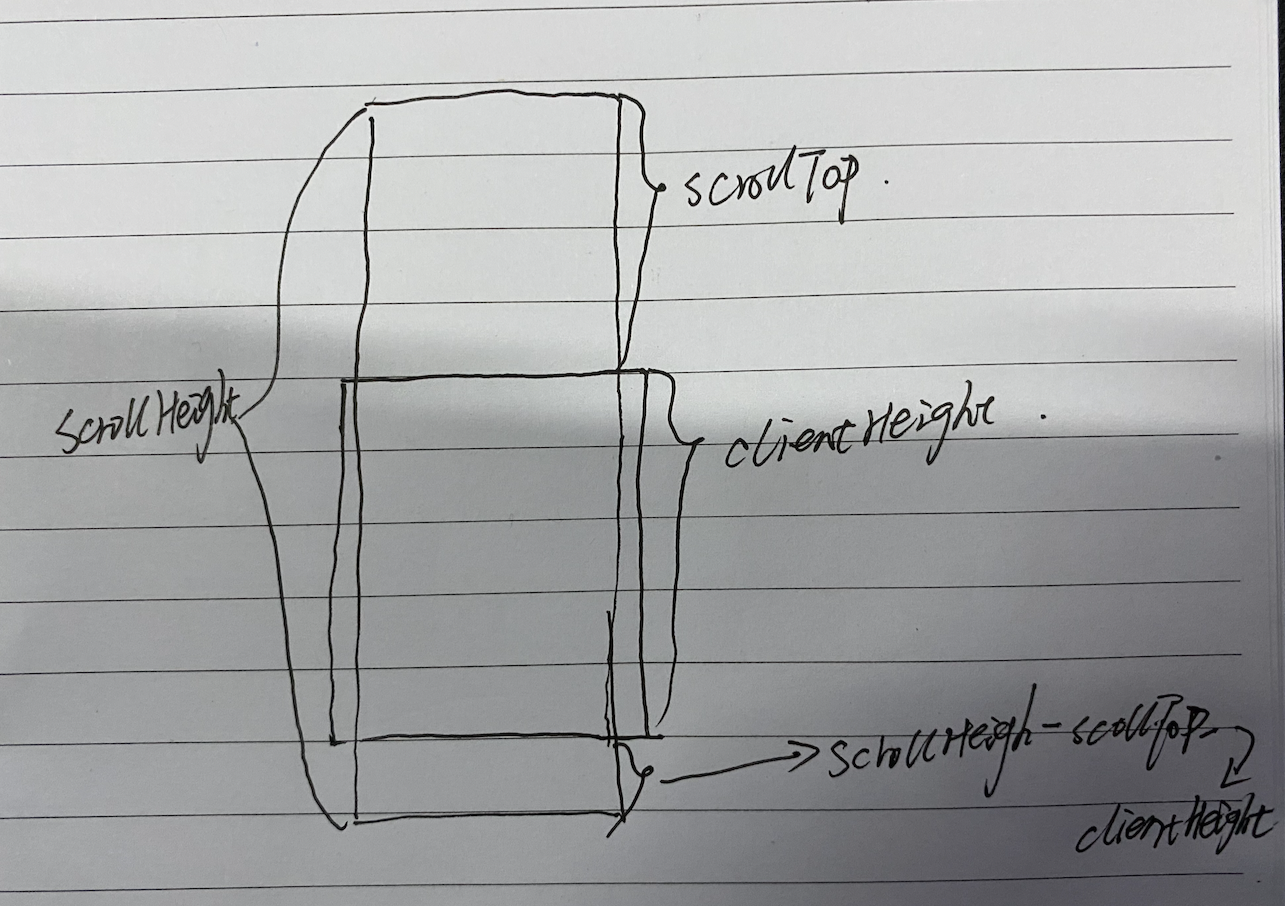 scrollTop.
scrollHeight
clientHeight.
scrollHeigh-scollTop-
clientHeight